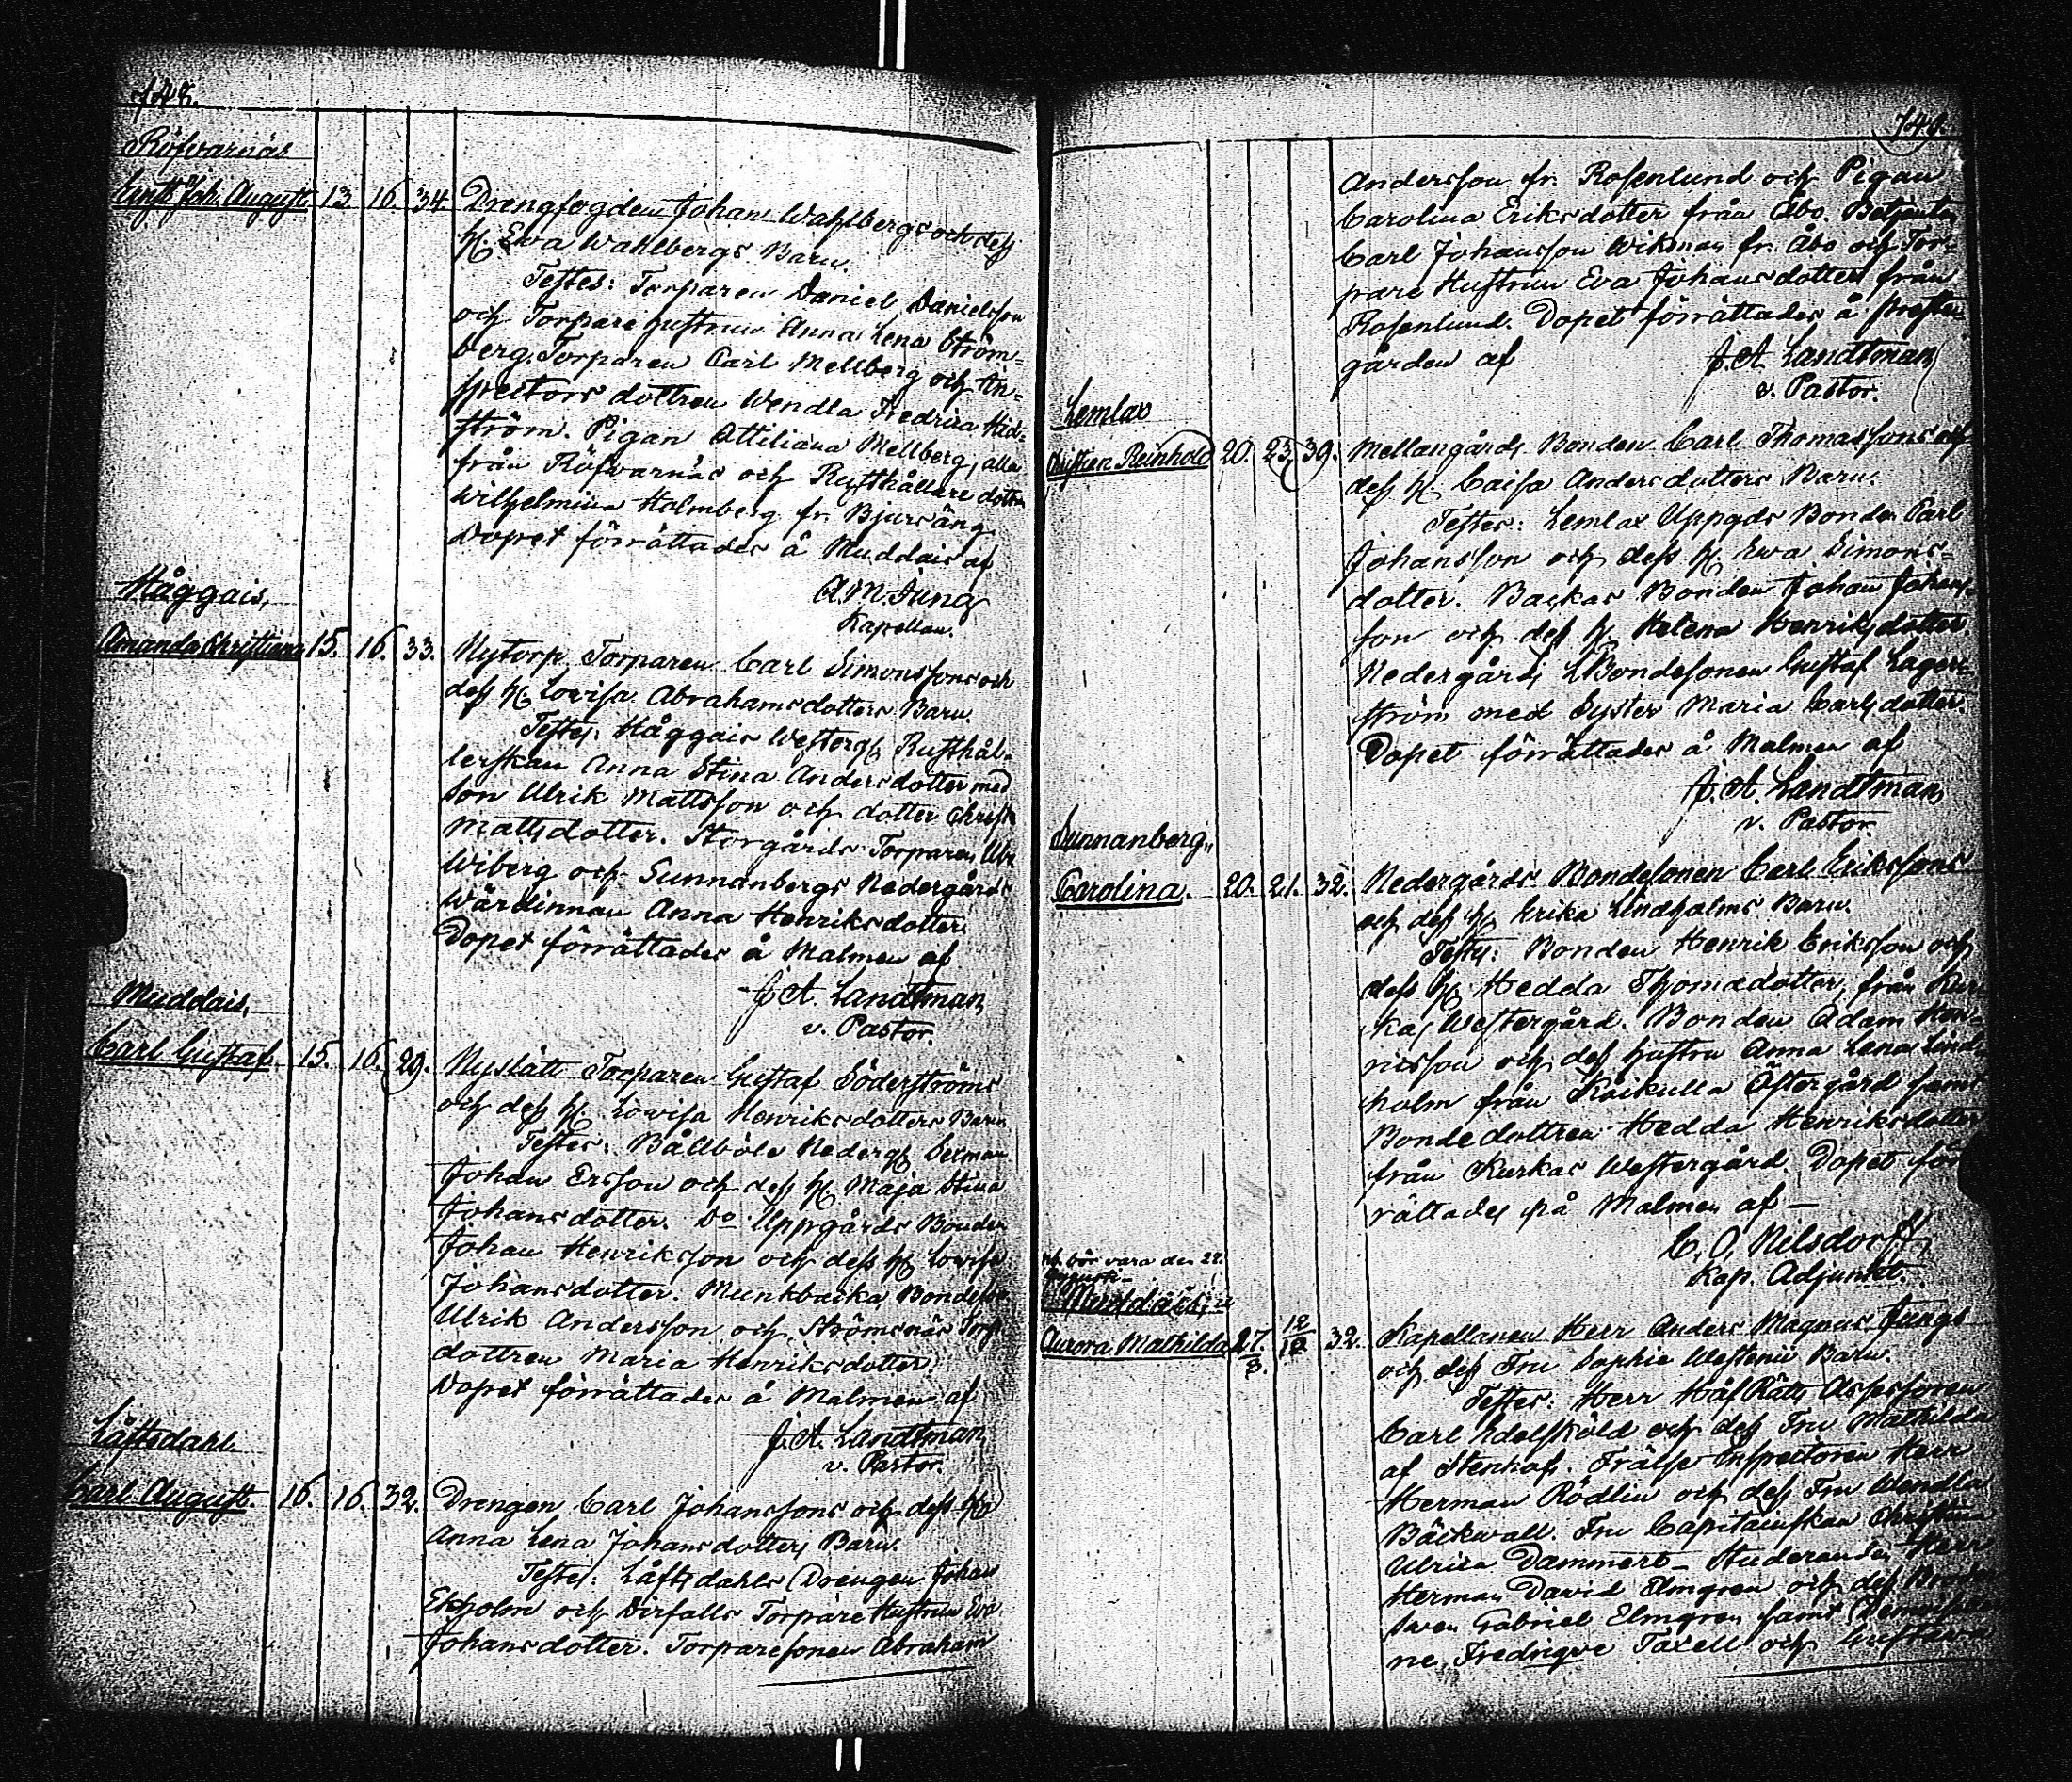 148.
Röfvarnäs
Gust. Joh. August. 13. 16. 34. Drengfogden Johan Wahlbergs och dess
h. Ewa Wahlbergs Barn.
Testes: Torparen Daniel Danielsson
och Torpare hustrun Anna Lena Ström-
berg. Torparen Carl Mellberg och In-
spectors dottren Wendla Fredrica Hid-
ström. Pigan Ottiliana Mellberg, alla
från Röfvarnäs och Rusthållare dottren
Wilhelmina Holmberg fr. Bjursäng
Dopet förrättades å Muddais af
A. M. Jung
Kapellan.
Håggais,
Amanda Christiana 15. 16. 33. Nytorp Torparen Carl Simonssons och
dess h. Lovisa Abrahamsdotters Barn.
Testes: Håggais Westergs Rusthål-
lerskan Anna Stina Andersdotter med
son Ulrik Mattsson och dotter Christ.
Mattsdotter. Storgårds Torparen Abr.
Wiberg och Sunnanbergs Nedergårds
Wärdinnan Anna Henriksdotter.
Dopet förrättades å Malmen af
J. A. Landtman,
v. Pastor.
Muddais,
Carl Gustaf. 15. 16. 29. Nyslätt Torparen Gustaf Söderströms
och dess h. Lovisa Henriksdotters Barn
Testes: Bållböle Nederg. Sexman
Johan Ersson och dess h. Maja Stina
Johansdotter. Do Uppgårds Bonden
Johan Henriksson och dess h. Lovisa
Johansdotter. Munkbacka Bondeson
Ulrik Andersson och Strömsnäs Torp.
dottren Maria Henriksdotter.
Dopet förrättades å Malmen af
J. A. Landtman,
v. Pastor.
Låftsdahl
Carl August. 16. 16. 32. Drengen Carl Johanssons och dess h.
Anna Lena Johansdotters Barn.
Testes: Låftsdahls Drengen Johan
Ekholm och Dirfalls Torpare Hustrun Eva
Johansdotter. Torparesonen Abraham
149.
Andersson fr. Rosenlund och Pigan
Carolina Eriksdotter från Åbo. Betjenten
Carl Johansson Wikman fr. Åbo och Tor-
pare Hustrun Eva Johansdotter från
Rosenlund. Dopet förrättades å Prest
gården af J. A. Landtman,
v. Pastor.
Lemlax
Christian Reinhold 20. 23. 39. Mellangårds Bonden Carl Thomassons och
dess h. Caisa Andersdotters Barn.
Testes: Lemlax Uppgds Bonden Carl
Johansson och dess h. Ewa Simons-
dotter. Backas Bonden Johan Johans-
son och dess h. Helena Henriksdotter
Nedergårds Bondesonen Gustaf Lager-
ström med Syster Maria Carlsdotter.
Dopet förrättades å Malmen af
J. A. Landtman,
v. Pastor.
Sunnanberg,,
Carolina. 20. 21. 32. Nedergårds Bondesonen Carl Erikssons
och dess h. Erika Lindholms Barn.
Testes: Bonden Henrik Eriksson och
dess h. Hedda Thomædotter, från Kur-
kas Westergård. Bonden Adam Hen-
ricsson och dess hustru Anna Lena Lind-
holm från Koikulla Östergård samt
Bondedottren Hedda Henriksdotter
från Kurkas Westergård Dopet för
rättades på Malmen af —
C. O. Nilsdorff,
Kap. Adjunct.
bör vara den 22.
Augusti
Muddais,,
Aurora Mathilda 27./8. 12/12 32. Kapellanen Herr Anders Magnus Jungs
och dess Fru Sophie Westenii Barn.
Testes: Herr HåfRätts Assessoren
Carl Edelsköld och dess Fru Mathilda
af Stenhof. Frälse Inspectoren Herr
Herman Rödlin och dess Fru Wendla
Bäckwall. Fru Capitainskan Christina
Ulrica Dammert – Studeranden Herr
Herman David Elmgren och dess Broder
Sven Gabriel Elmgren samt Demoisellerna
ne Fredrique Taxell och Gustava